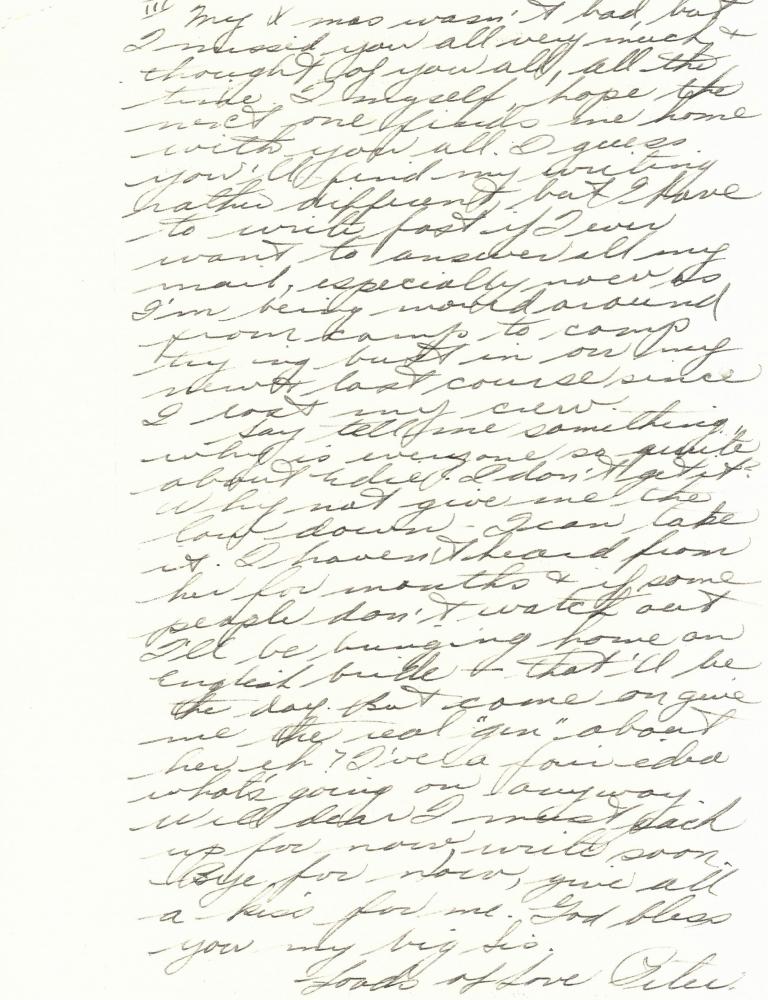 III My Xmas wasn't bad, but
I missed you all very much &
thought of you all, all the
time. I myself, hope the
next one finds me home
with you all. I guess
you'll find my writing
rather different, but I have
to write fast if I ever
want to answer all my
mail, especially now as
I'm being moved around
from camp to camp
trying butt in on my
new & last course since
I lost my crew.
Say tell me something,
why is everyone so quite
about Edie? I don't get it?
Why not give me the
low down - I can take
it. I haven't heard from
her for months & if some
people don't watch out
I'll be bringing home an
English bride - that'll be
the day. But come on give
me the real "gin" about
her eh? I've a fair idea
what's going on anyway
Well dear I must pack
up for now, write soon.
Bye for now, give all
a kiss for me. God bless
you my big Sis.
Loads of Love Peter.